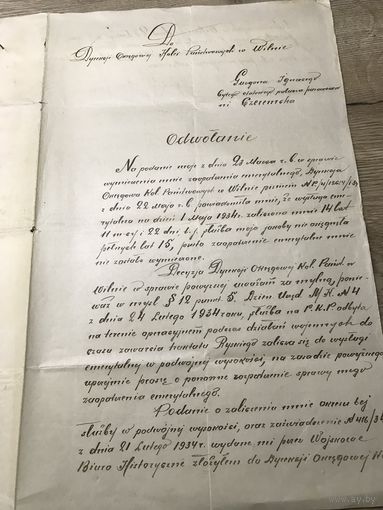 Do
Dyrekcji Okręgowej Kolei Państwowych w Wilnie
Ignacego
Odwołanie
Na podanie moje z dnia 23 Marca r. b. w sprawie
wymierzenia mnie zaopatrzenia emerytalnego, Dyrekcja
Okręgowa Kol. Państwowych w Wilnie pismem
z dnia 22 maja r. b. powiadomiła mnie, że wysługa eme-
rytalna na dzień 1 maja 1934r. zaliczono mnie 14 lat
11 m-cy i 22 dni t. j. służba moja jakoby nie osiągnęła
pełnych lat 15, przeto zaopatrzenie emerytalne mnie
nie zostało wymierzone.
Decyzję Dyrekcji Okręgowej Kol. Państ. w
Wilnie w sprawie powyższej uważam za mylną, ponie-
waż w myśl § 12 punkt 5. Dzien. Urzęd. M. K. N 4
z dnia 24 Lutego 1934 roku, służba na P.K.P. odbyta
na terenie operacyjnem podczas działań wojennych do
czasu zawarcia traktatu Ryskiego zalicza się do wysługi
emerytalnej w podwójnej wysokości, na zasadzie powyższego
uprzejmie proszę o ponowne rozpatrzenie sprawy mego
zaopatrzenia emerytalnego.
Podanie o zaliczenia mnie okresu tej
służby w podwójnej wysokości, oraz zaświadczenie
z dnia 21 Lutego 1934r. wydane mi przez Wojskowe
Biuro Historyczne złożyłem do Dyrekcji Okręgowej
www.ay.by